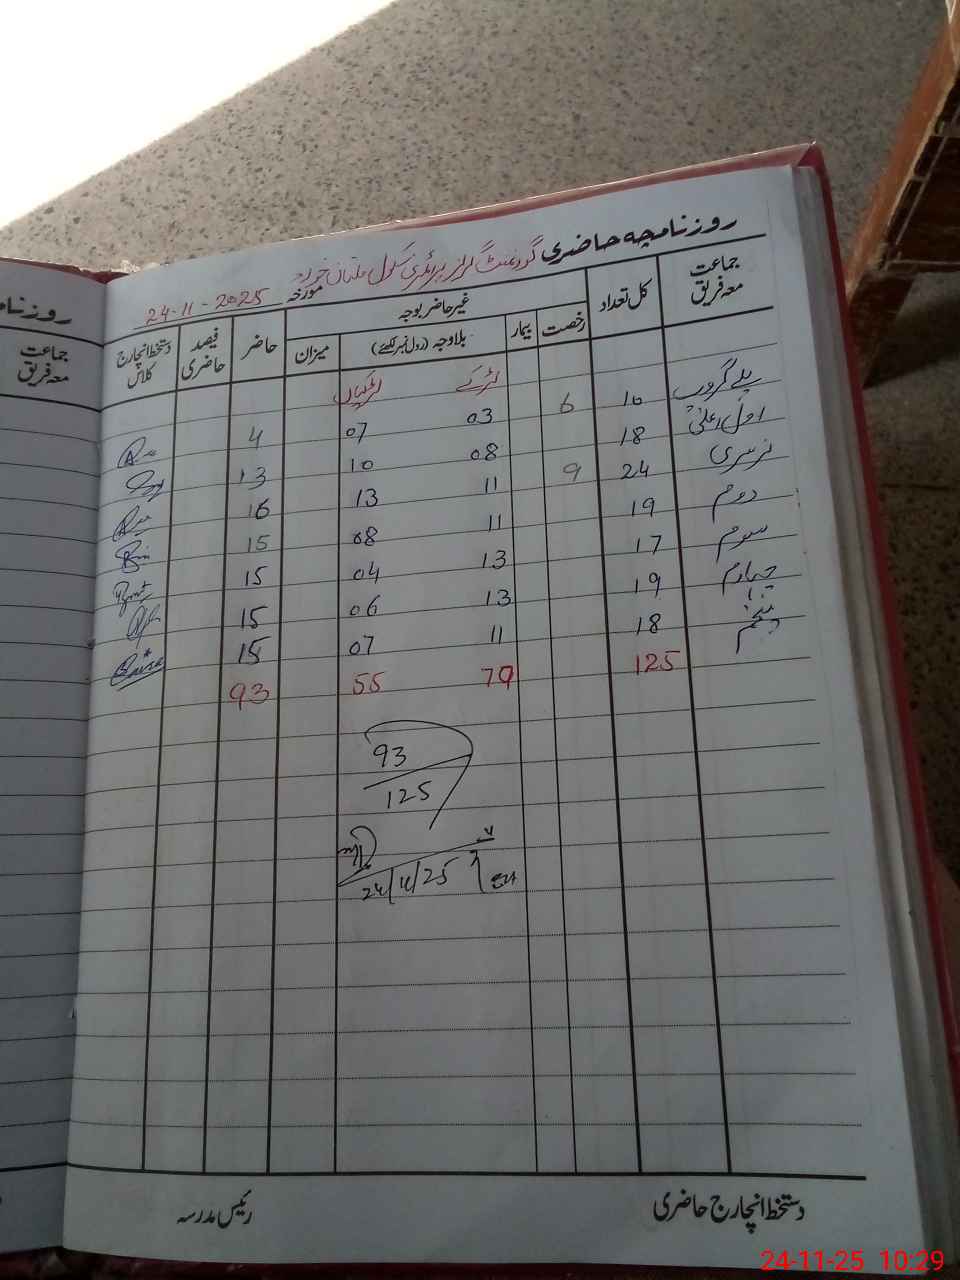 روزنامچہ حاضری گورنمنٹ گرلز پرائمری سکول ملتان خورد
مورخہ 24-11-2025
جماعت معہ فریق کل تعداد غیر حاضر بوجہ حاضر فیصد حاضری دستخط انچارج کلاس
رخصت بیمار بلاوجہ (رول نمبر لکھئے) میزان
لڑکے لڑکیاں
پلے گروپ 10 6 03 07 4
اول اعلیٰ 18 08 10 13
نرسری 24 9 11 13 16
دوم 19 11 08 15
سوم 17 13 04 15
چہارم 19 13 06 15
پنجم 18 11 07 15
125 70 55 93
93
125
24/11/25
دستخط انچارج حاضری رئیس مدرسہ
جماعت
معہ فریق
24-11-25 10:29